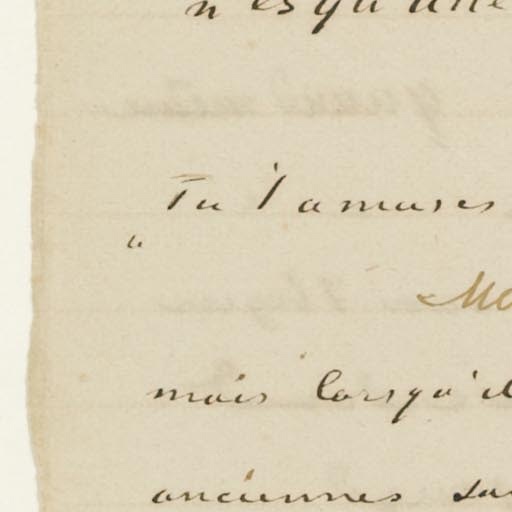 n'es qu'une
Tu t'amuses
"
mais lorsqu'il
anciennes